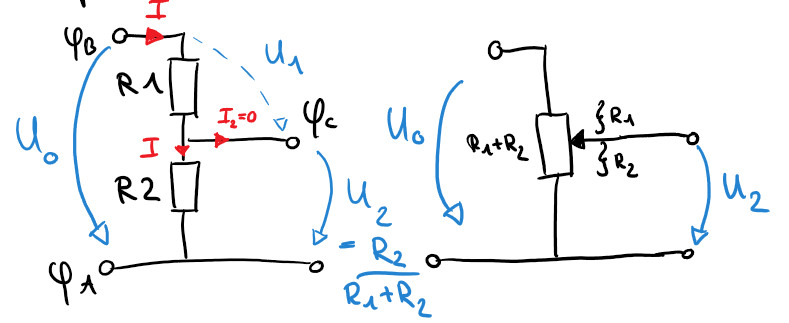 I
φB
U₁
R1
I₂=0
φC
I
U₀
R2
U₂
= R₂
R₁+R₂
φA
U₀
R₁+R₂
}R₁
}R₂
U₂